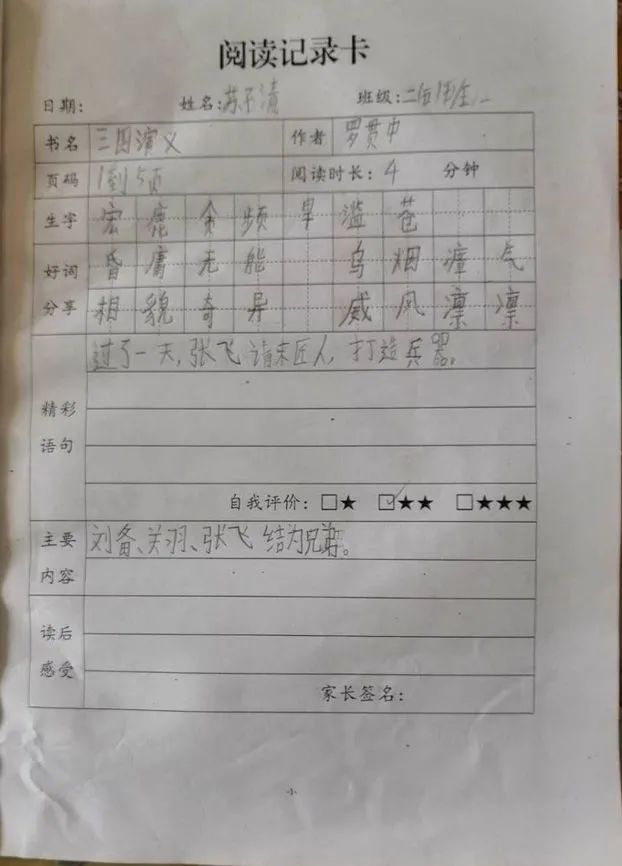 阅读记录卡
日期： 姓名：苏 清 班级：二
书名 三国演义 作者 罗贯中
页码 1到5页 阅读时长：4 分钟
生字 宏 鹿 贪 频 旱 滥 苍
好词 昏庸无能 乌烟瘴气
分享 相貌奇异 威风凛凛
过了一天，张飞请来匠人，打造兵器。
精彩
语句
自我评价：□★ ☑★★ □★★★
主要 刘备、关羽、张飞结为兄弟。
内容
读后
感受
家长签名：